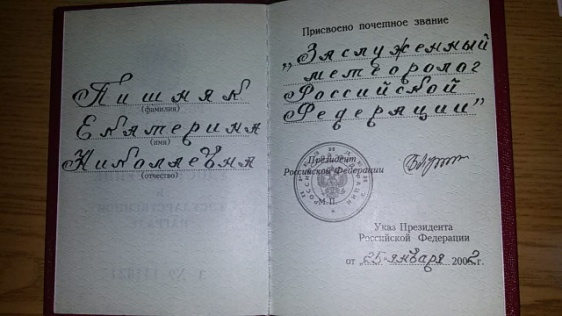 Пишняк
(фамилия)
Екатерина
(имя)
Николаевна
(отчество)
Присвоено почетное звание
„Заслуженный
метеоролог
Российской
Федерации”
Президент
Российской Федерации
М.П.
Указ Президента
Российской Федерации
от „25” января 2002 г.